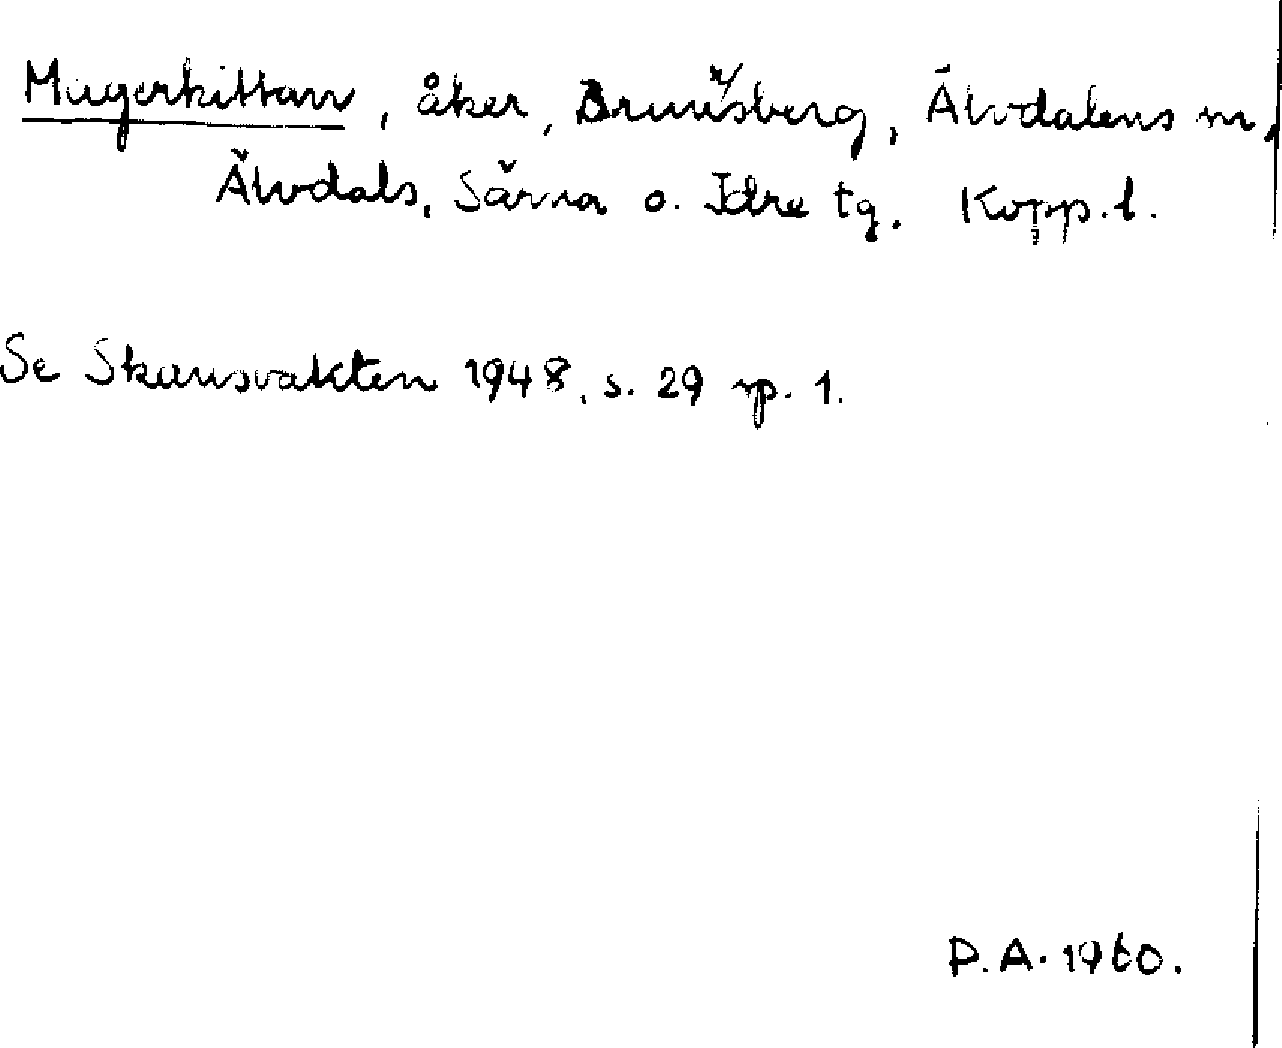 Mugerkittan, åker, Brunnsberg, Älvdalens sn,
Älvdals, Särna o. Idre tg. Kopp.l.
Se Skansvakten 1948, s. 29 sp. 1.
P.A. 1960.